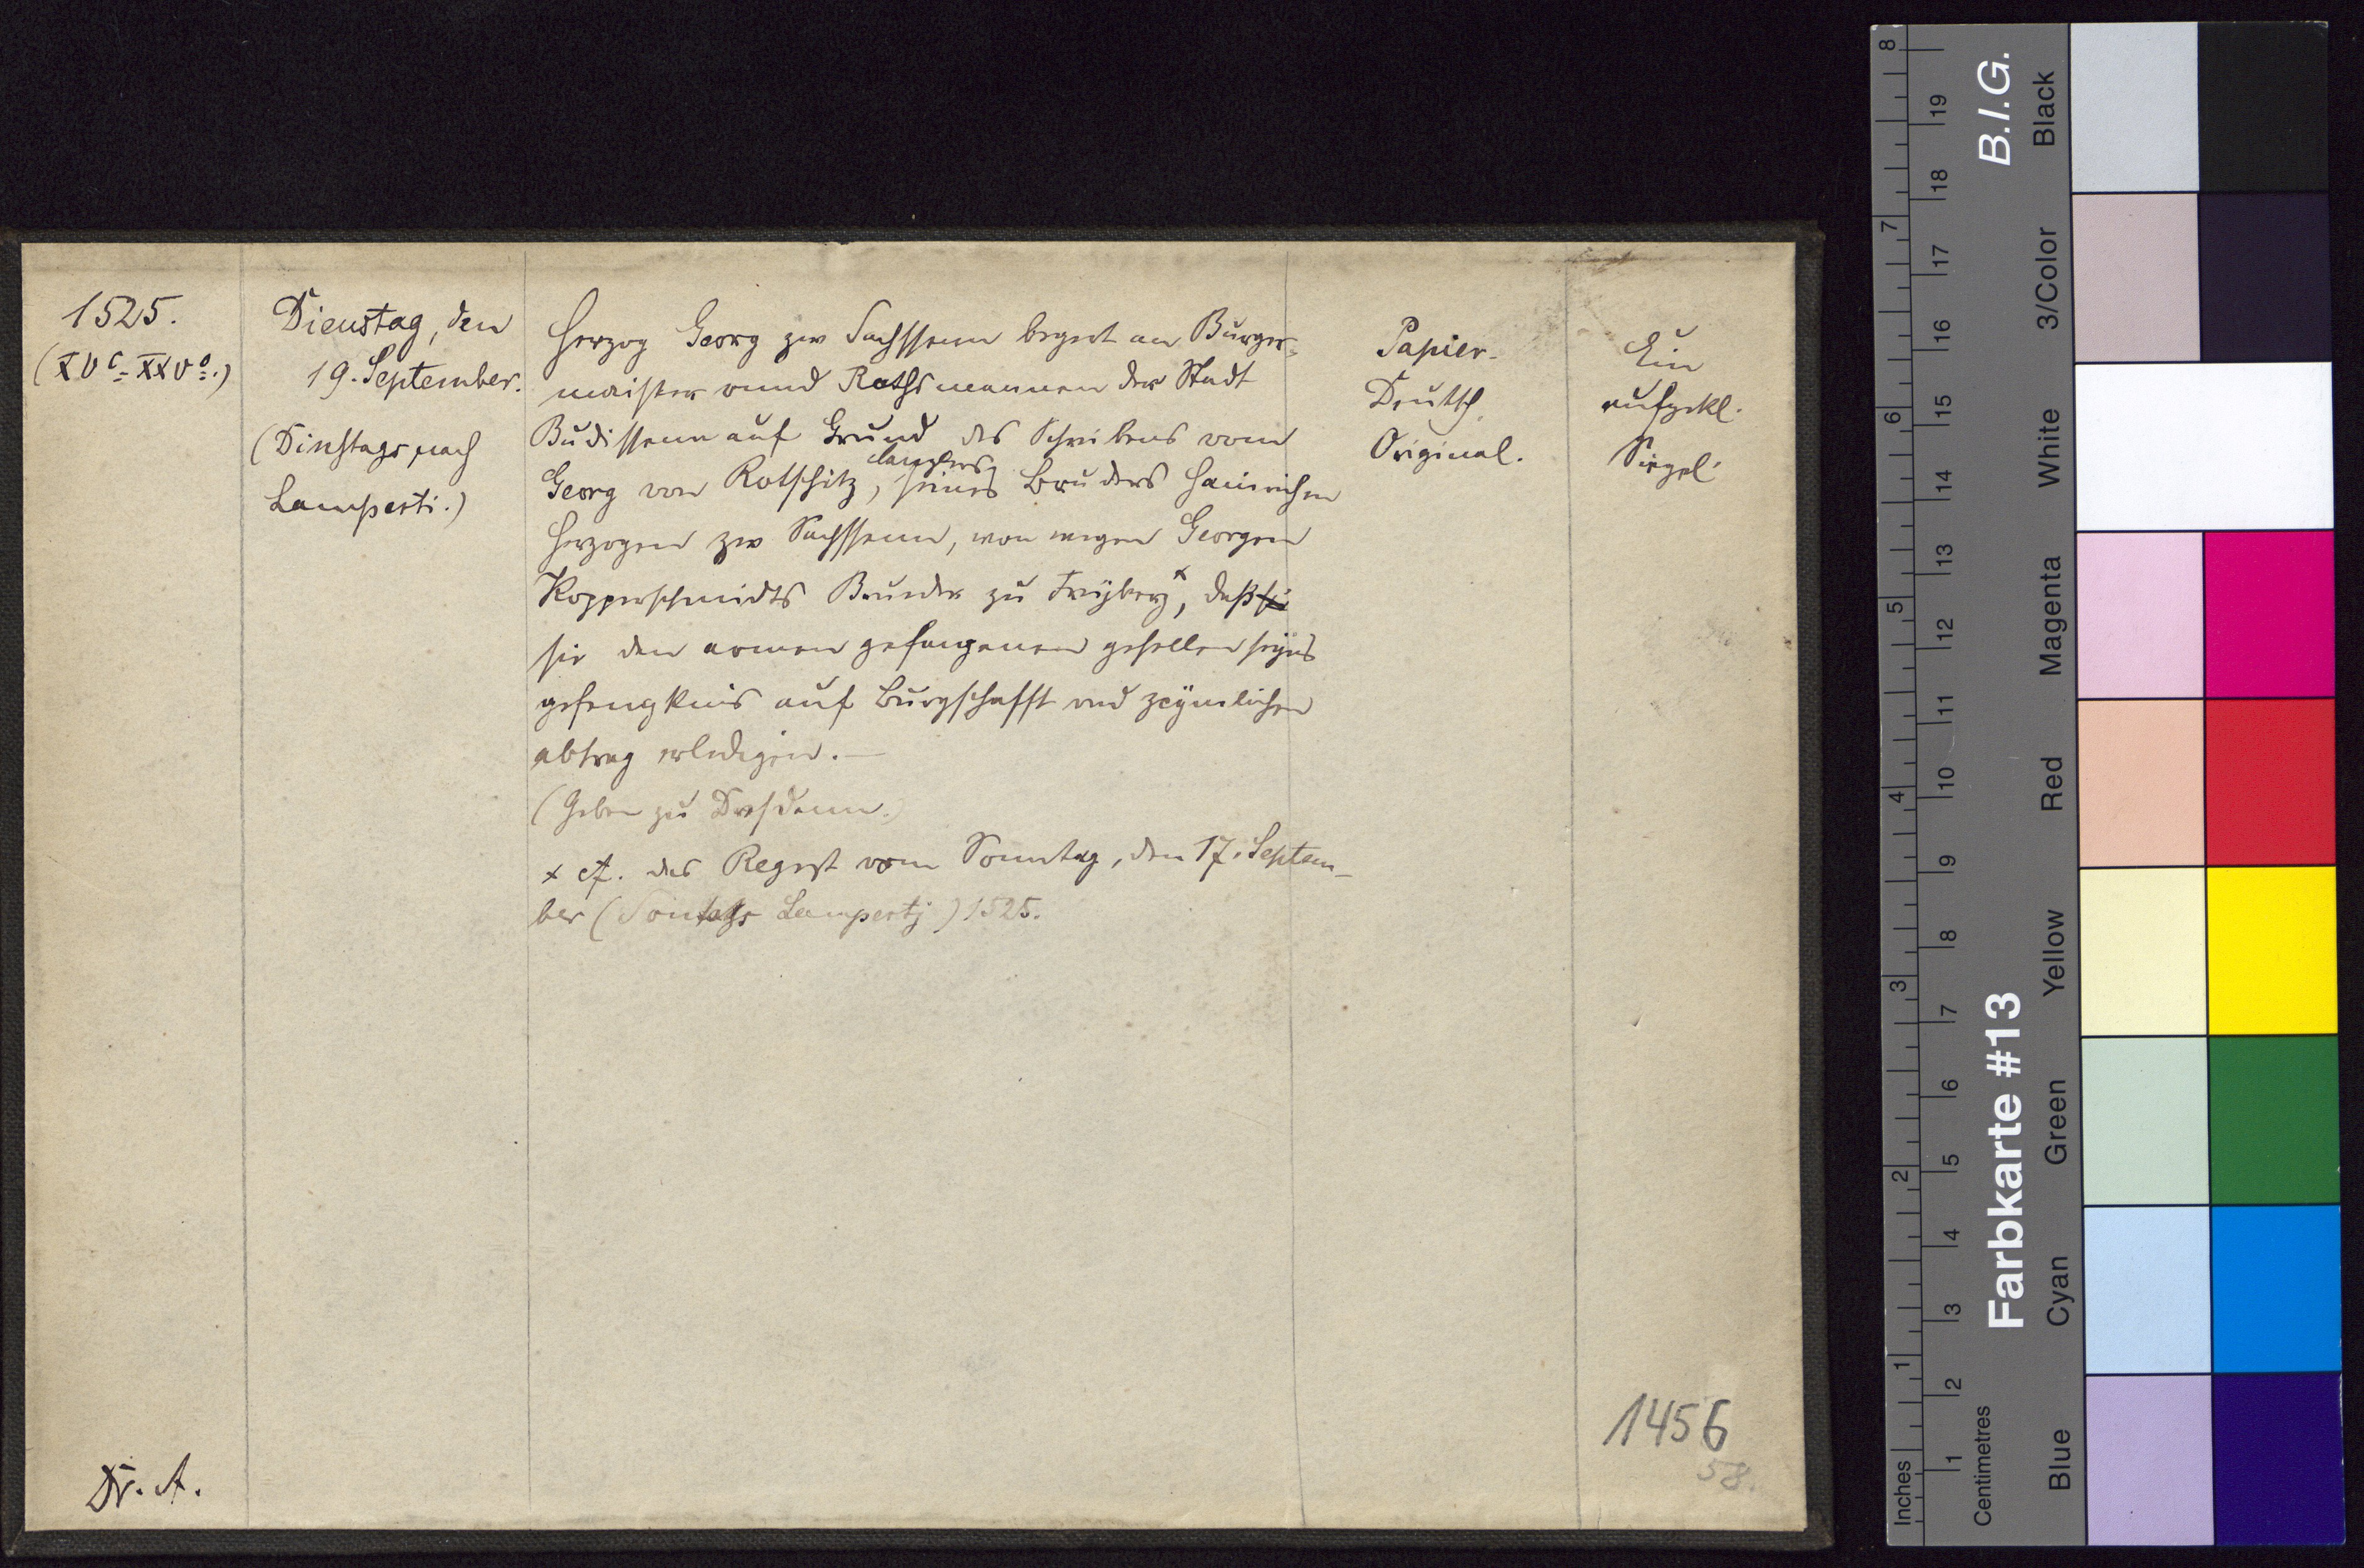 1525.
(XVc= XXVo.)
Dienstag, den
19. September.
(Dinstags nach
Lamperti.)
Herzog Georg zw Sachssenn begert an Burger=
maister vnnd Rathsmannen der Stadt
Budissenn auf Grund des Schreibens vom
Georg von Rotschitz, canzlers seines Bruders Hainrichen
Herzogen zw Sachssenn, von wegen Georgen
Kopperschmidts Bruder zu Freyberg x, daß
sie den armen gefangenen gesellen seyns
gefengknis auf Burgschafft vnd zcymlichen
abtrag erledigen. —
(Geben zu Dresdenn.)
x cf. das Regest vom Sonntag, den 17. Septem-
ber (Sontags Lampertj) 1525.
Papier.
Deutsch.
Original.
Ein
aufgekl.
Siegel.
Dr. A.
1456
58.
Inches 1 2 3 4 5 6 7 8
Centimetres 1 2 3 4 5 6 7 8 9 10 11 12 13 14 15 16 17 18 19
Farbkarte #13
B.I.G.
Blue Cyan Green Yellow Red Magenta White 3/Color Black